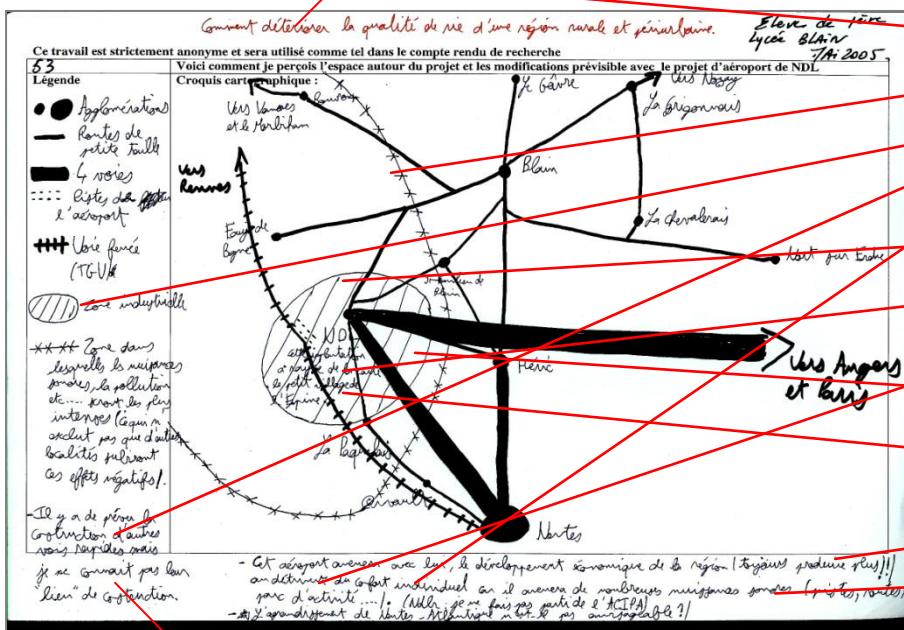 Comment détériorer la qualité de vie d'une région rurale et périurbaine.
Elève de 1ère
Lycée BLAIN
MAi 2005.
Ce travail est strictement anonyme et sera utilisé comme tel dans le compte rendu de recherche
53
Voici comment je perçois l'espace autour du projet et les modifications prévisible avec le projet d'aéroport de NDL
Légende
Croquis cartographique :
Agglomérations
Routes de
petite taille
4 voies
Pistes de
l'aéroport
Voie ferrée
(TGV)
Zone industrielle
Zone dans
lesquelles les nuisances
sonores, la pollution
etc.... seront les plus
intenses (ce qui n'
exclut pas que d'autres
localités subiront
ces effets négatifs).
- Il y a de prévu la
construction d'autres
vois rapides mais
je ne connait pas leur
"lieu" de construction.
Vers Vannes
et le Morbihan
Bouvron
Le Gâvre
Vers Nozay
La Grigonnais
Vers
Rennes
Blain
Fay de
Bgne
La Chevalerais
Nort sur Erdre
Blain
NDL
implantation
le petit village de
l'Epine
Héric
Vers Angers
et Paris
La Paquelais
Orvault
Nantes
- Cet aéroport amenera avec lui, le développement économique de la région (toujours produire plus!!)
au détriment du confort individuel car il amenera de nombreuses nuisances sonores (pistes, routes,
parc d'activité ...). (NDLR: je ne fais pas parti de l'ACIPA)
- L'agrandissement de Nantes-Atlantique n'est-il pas envisageable ?